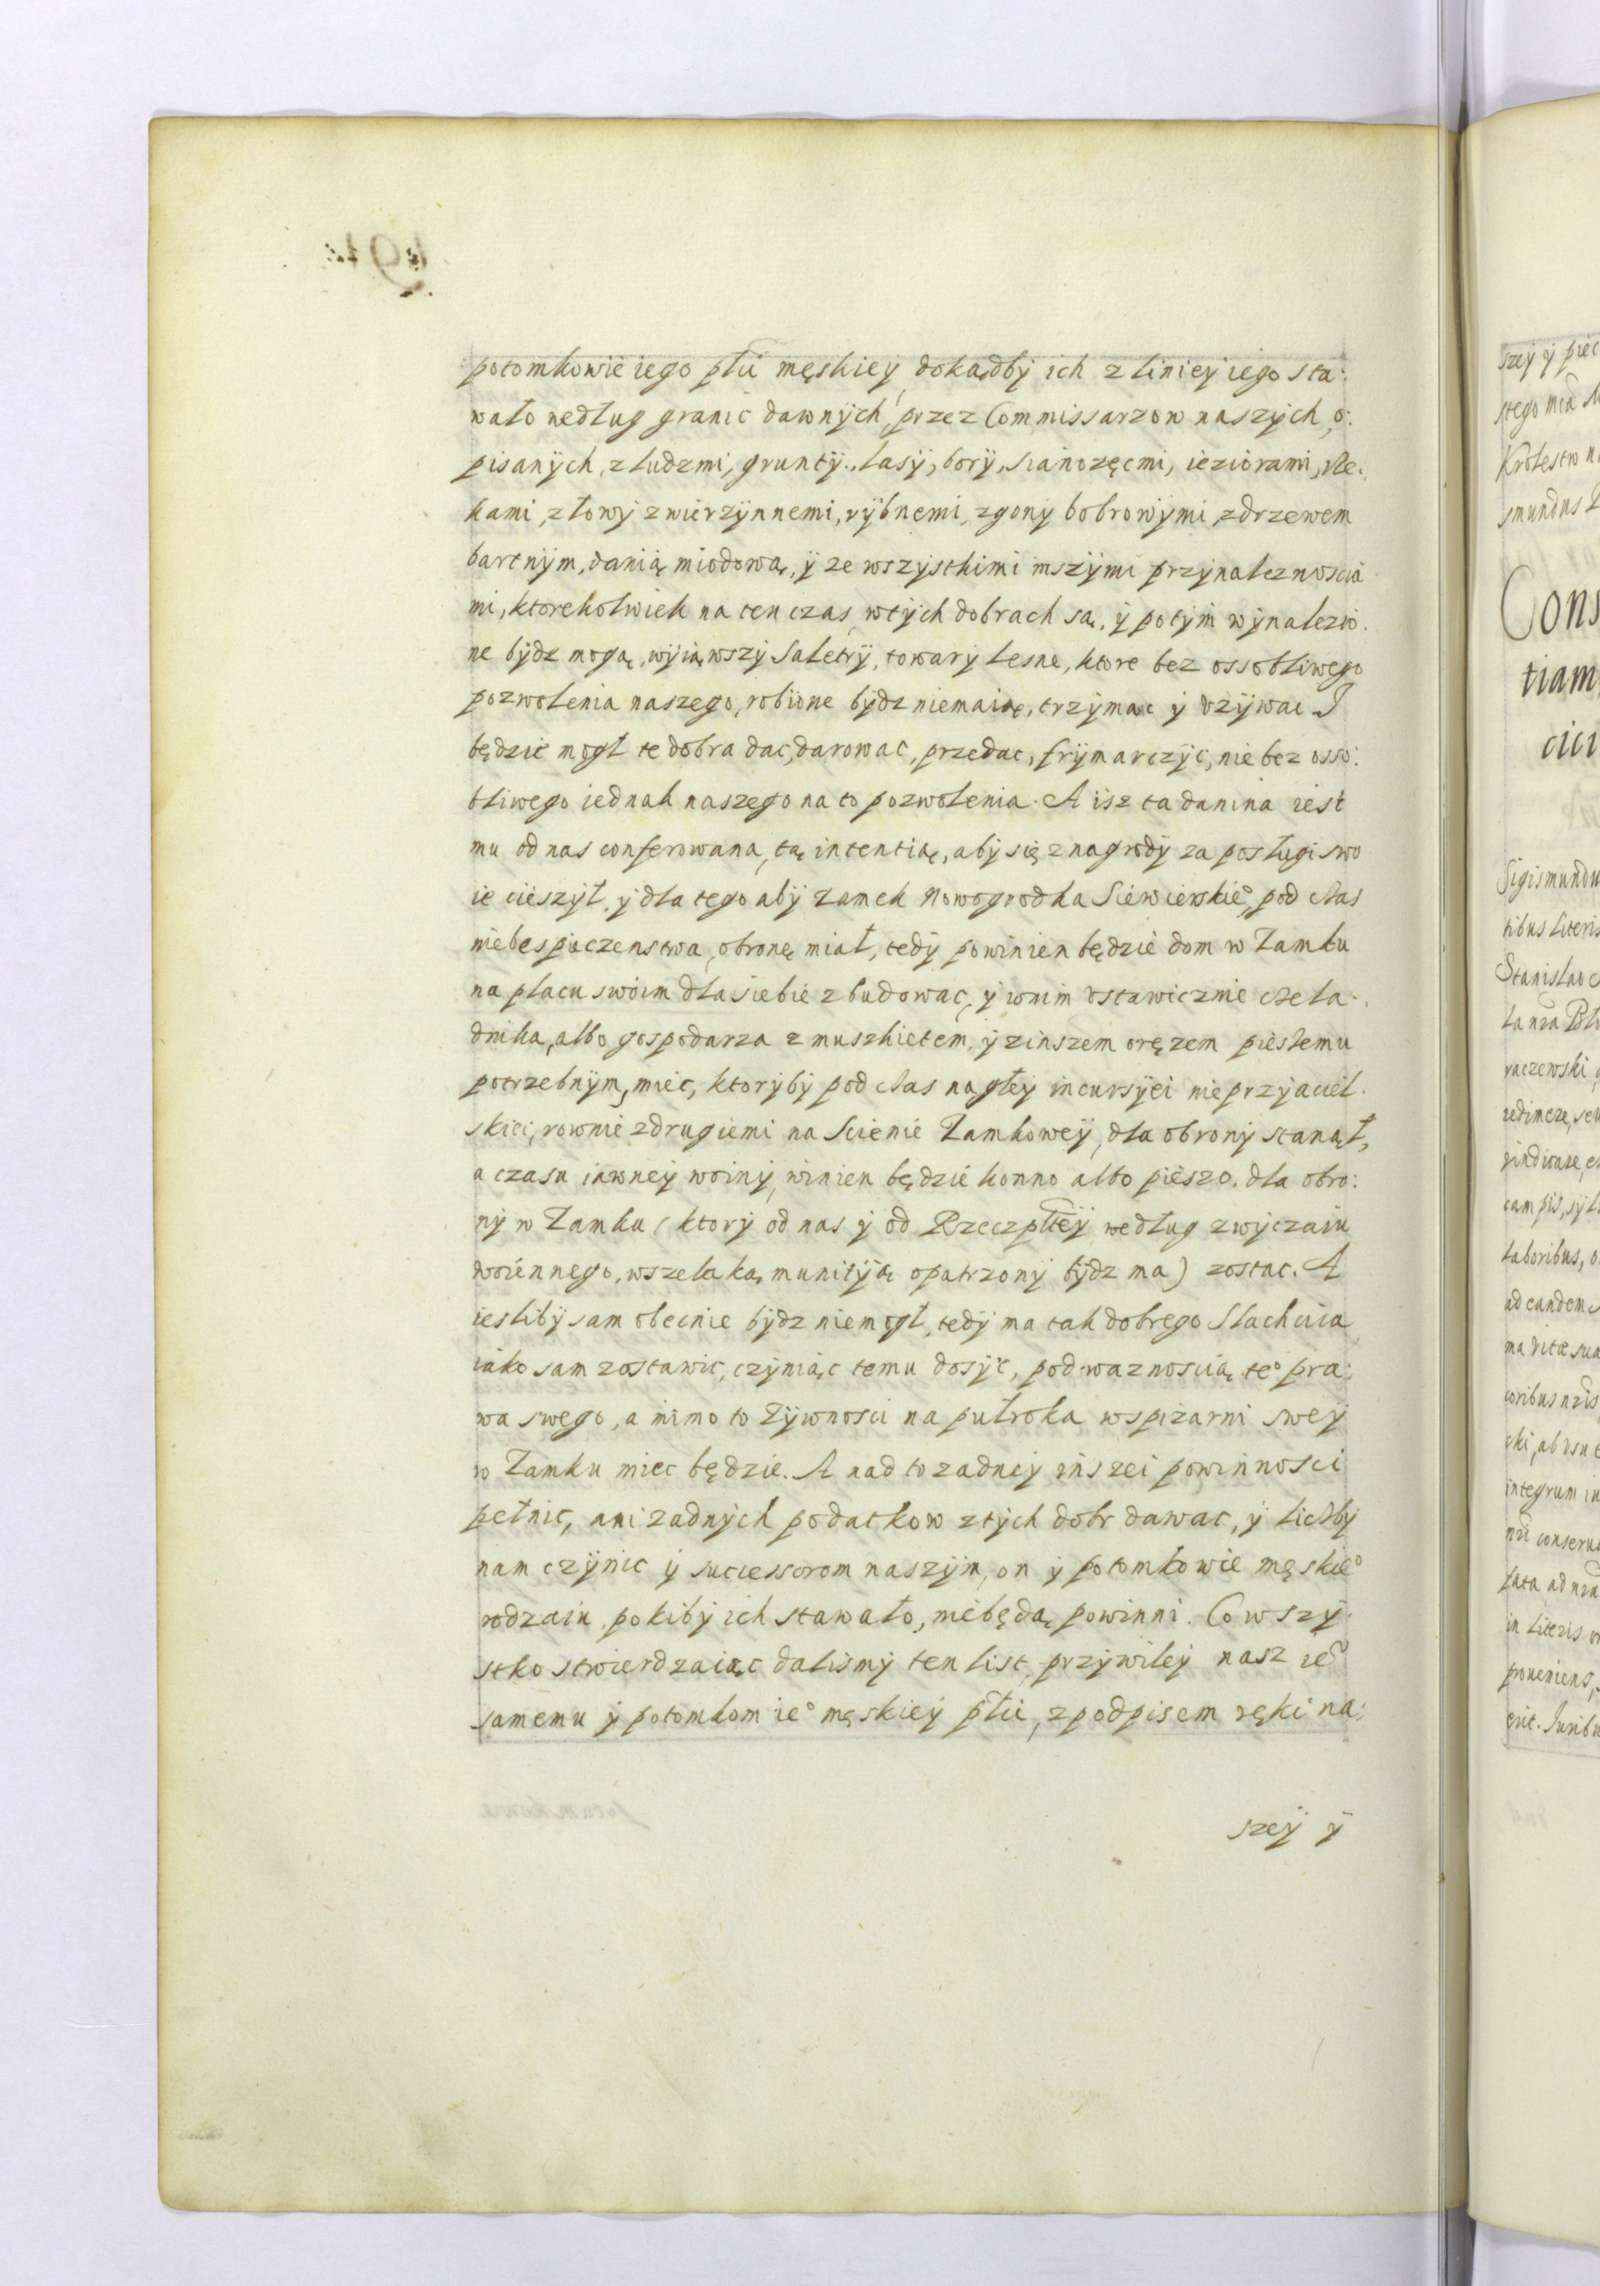 potomkowie iego płci męskiey, dokądby ich z liniey iego sta:
wało według granic dawnych, przez Commissarzow naszych, o:
pisanych, z ludzmi, grunty, lasy, bory, sianozęcmi, ieziorami, rze:
kami, z łowy zwierzynnemi, rybnemi, z gony bobrowymi z drzewem
bartnym, danią miodową, y ze wszystkimi inszymi przynaleznoscia
mi, ktorekolwiek na ten czas, w tych dobrach są, y potym wynalezio
ne bydz mogą, wyiąwszy Saletry, towary lesne, ktore bez ossobliwego
pozwolenia naszego, robione bydz niemaią, trzymac y uzywac I
będzie mogł te dobra dac, darowac, przedac, frymarczyc, nie bez osso:
bliwego iednak naszego na to pozwolenia. A isz ta danina iest
mu od nas conferowana, tą intentią, aby się z nagrody za posługi swo
ie cieszył, y dla tego aby zamek Nowogrodka Siewierskie°, pod czas
niebespieczenstwa, obronę miał, tedy powinien będzie dom w Zamku
na placu swoim dla siebie zbudowac, y w nim ustawicznie czela:
dnika, albo gospodarza z muszkietem, y z inszem oręzem pieszemu
potrzebnym, miec, ktoryby pod czas nagłey incursyei nieprzyaciel
skiei, rownie z drugiemi na Scienie Zamkowey, dla obrony stanął,
a czasu iawney woiny, winien będzie konno albo pieszo. dla obro:
ny w Zamku (ktory od nas y od Rzeczpltey według zwyczaiu
woiennego, wszelaką munityą opatrzony bydz ma) zostac. A
iesliby sam obecnie bydz niemogł, tedy ma tak dobrego Slachcica
iako sam zostawic, czyniąc temu dosyc, pod waznoscią te° pra:
wa swego, a mimo to Zywnosci na pułroka w spizarni swey
w Zamku miec będzie. A nad to zadney inszei powinnosci
pełnic, ani zadnych podatkow z tych dobr dawac, y liczby
nam czynic y successorom naszym, on y potomkowie męskie°
rodzaiu pokiby ich stawało, niebędą powinni. Co wszy:
stko stwierdzaiąc dalismy ten list, przywiley nasz ie°
samemu y potomkom ie° męskiey płci, z podpisem ręki na:
szey y
szey y piec
Królestw n
Cons
tiam
cici
Sigismundu
tibus literis
Stanislao
raczewski
redimere, se
vindicare, e
campis, syl
laboribus, o
ad eandem
ma vitæ sua
integrum iu
in literis
proveniens,
erit. Juribu